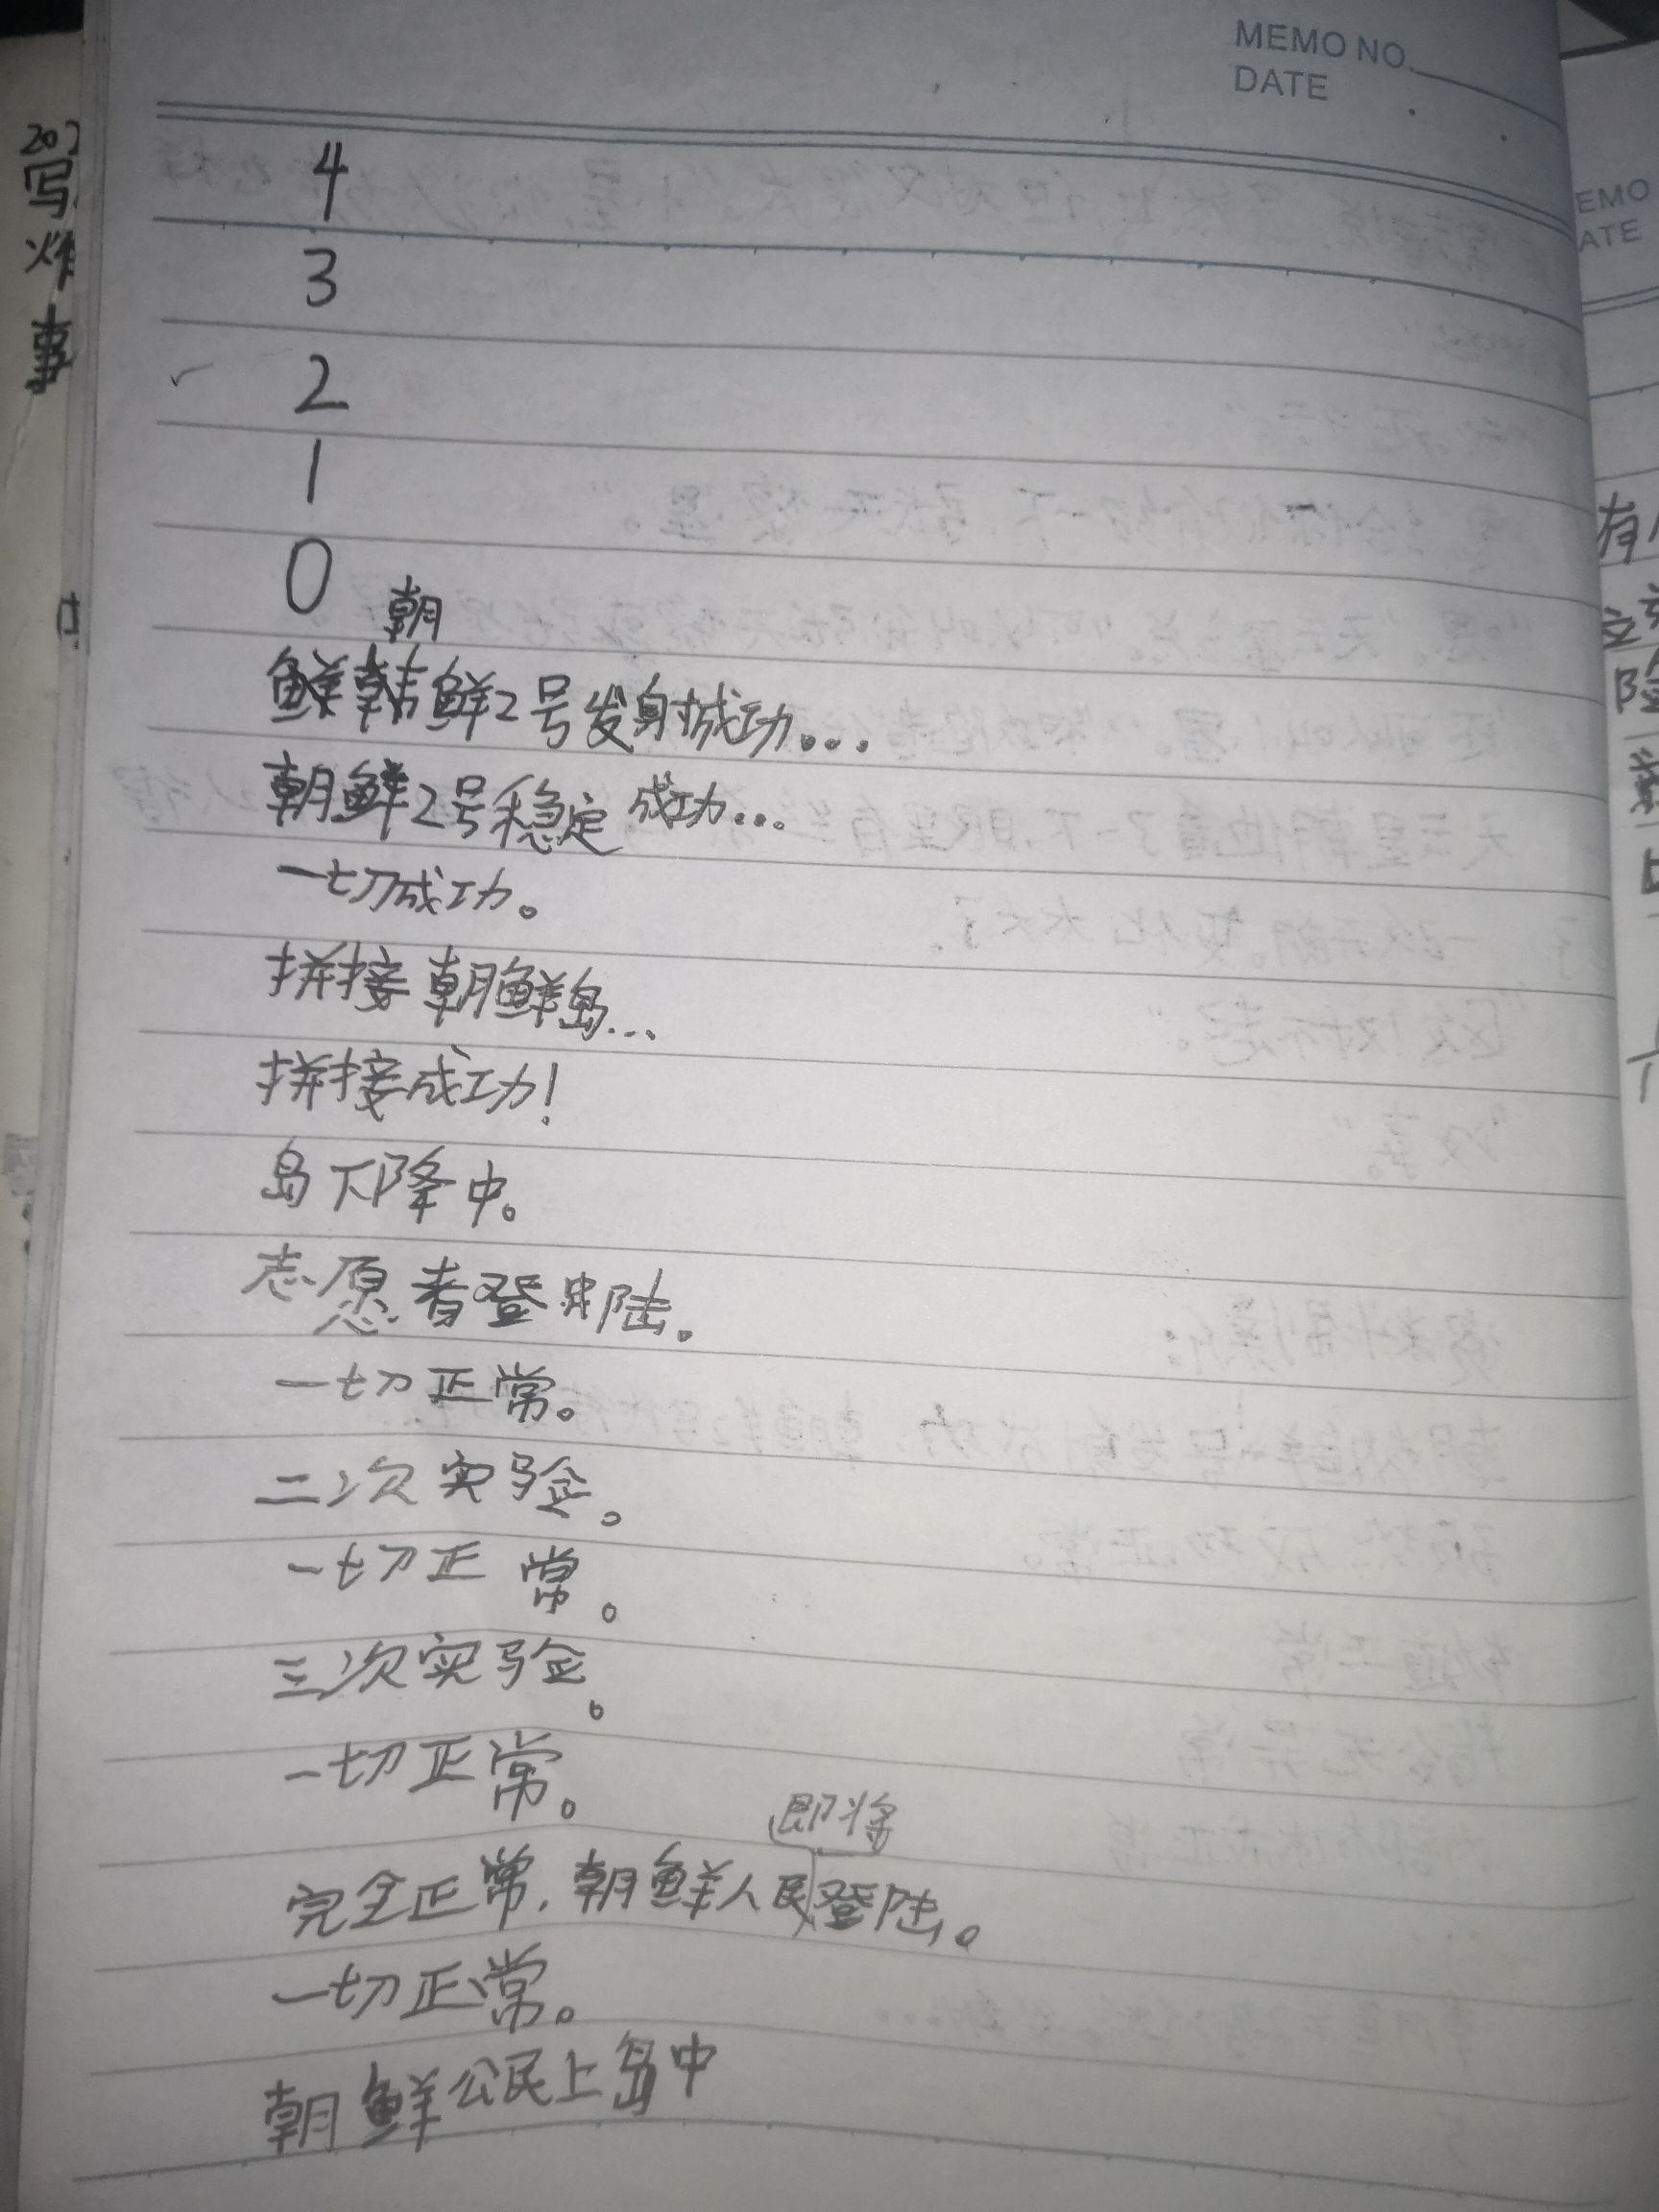 MEMO NO.
DATE
4
3
2
1
0
朝
鲜韩鲜2号发射成功...
朝鲜2号稳定成功...
一切成功。
拼接朝鲜岛...
拼接成功!
岛下降中。
志愿者登陆。
一切正常。
二次实验。
一切正常。
三次实验。
一切正常。
即将
完全正常,朝鲜人民登陆。
一切正常。
朝鲜公民上岛中
202
写
事
EMO
ATE
有
险